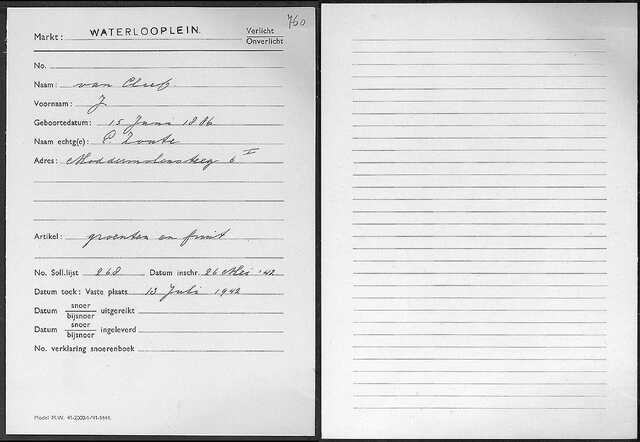 760
Markt: WATERLOOPLEIN. Verlicht
Onverlicht
No.
Naam: van Cleef
Voornaam: J
Geboortedatum: 15 Juni 1886
Naam echtg(e):
Adres: Moddermolensteeg 6 I
Artikel: groenten en fruit
No. Soll.lijst 268 Datum inschr. 26 Mei '42
Datum toek: Vaste plaats 13 Juli 1942
Datum snoer
bijsnoer uitgereikt
Datum snoer
bijsnoer ingeleverd
No. verklaring snoerenboek
Model M.W.